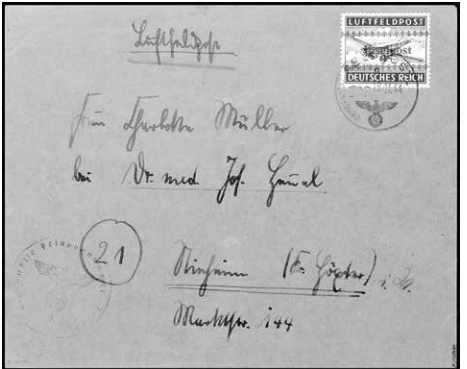 Luftfeldpost
LUFTFELDPOST
DEUTSCHES REICH
Frau Charlotte Müller
bei Dr. med. Jos.
21
Nieheim (Kr. Höxter) i. W.
Marktstr. 144